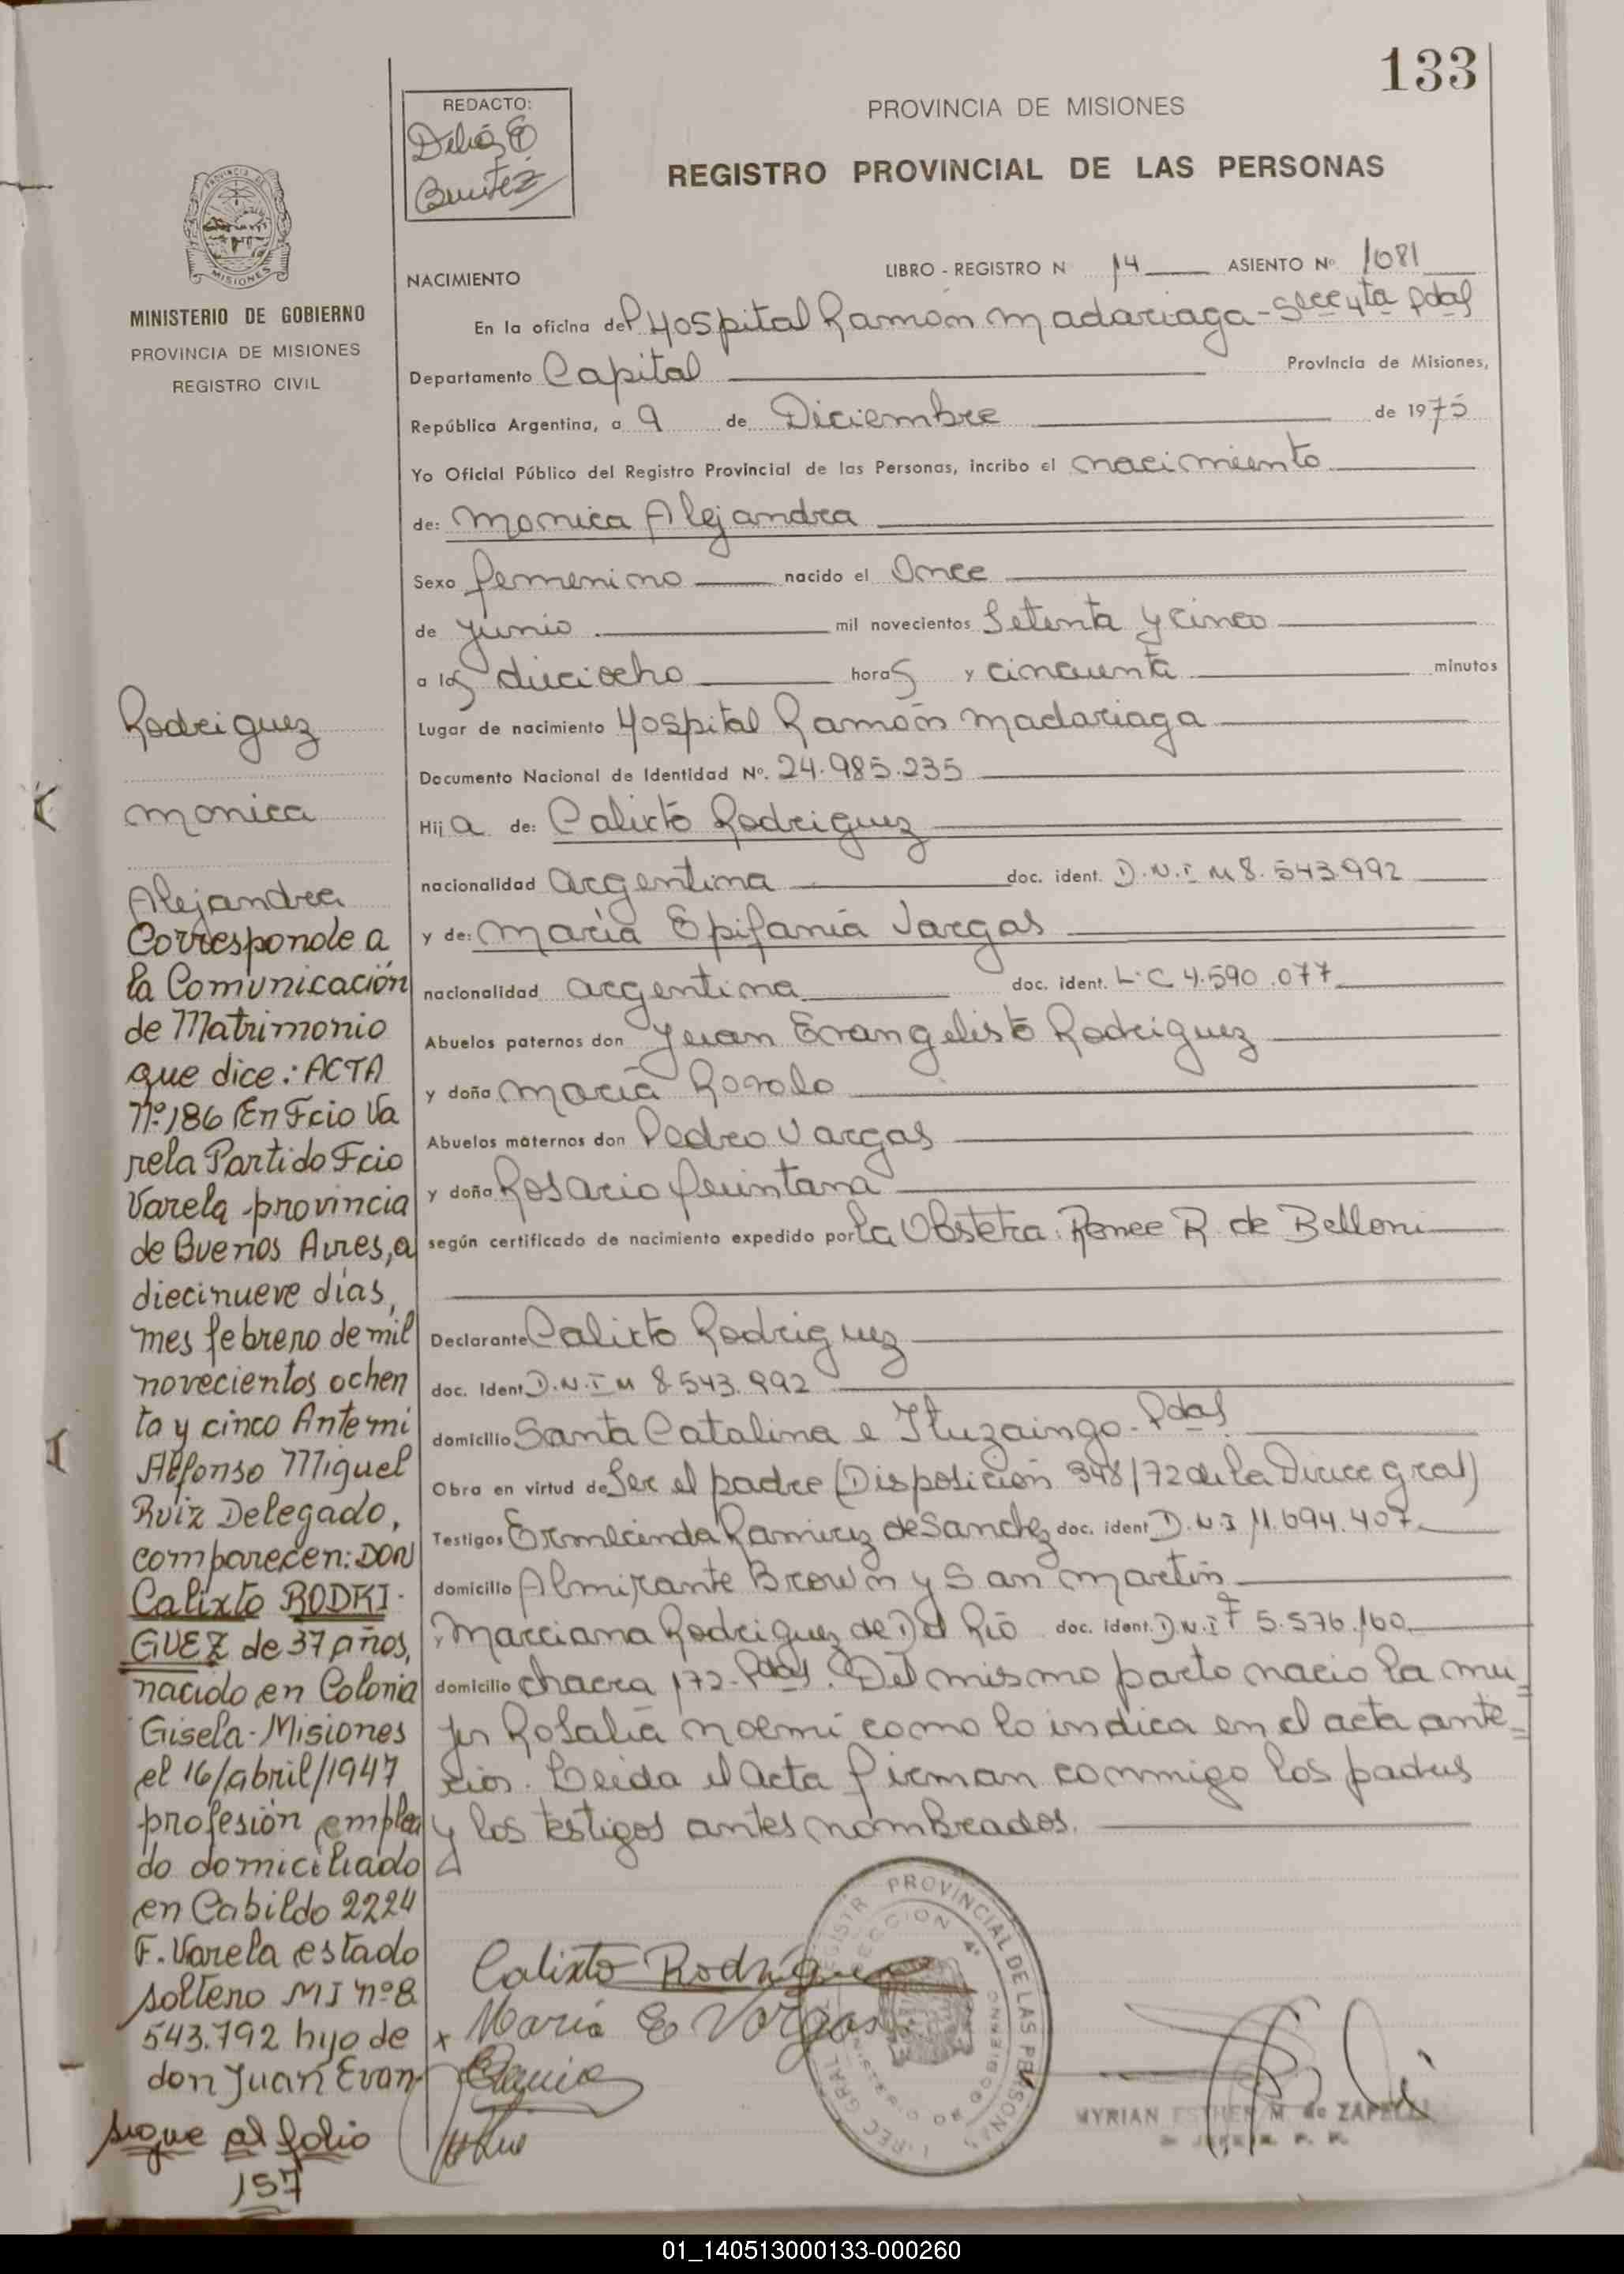 133
REDACTO:
Delia E
Benitez
PROVINCIA DE MISIONES
REGISTRO PROVINCIAL DE LAS PERSONAS
LIBRO - REGISTRO N 14 ASIENTO Nº 1081
NACIMIENTO
En la oficina del Hospital Ramón Madariaga - Secc 4ta Pdas
Departamento Capital Provincia de Misiones,
República Argentina, a 9 de Diciembre de 1975
Yo Oficial Público del Registro Provincial de las Personas, incribo el nacimiento
de: Monica Alejandra
Sexo femenino nacido el Once
de Junio mil novecientos Setenta y cinco
a las dieciocho horas y cincuenta minutos
Lugar de nacimiento Hospital Ramón Madariaga
Documento Nacional de Identidad Nº. 24.985.235
Hija de: Calixto Rodriguez
nacionalidad argentina doc. ident. D.N.I M 8.543.992
y de: María Epifania Vargas
nacionalidad argentina doc. ident. L.C 4.590.077
Abuelos paternos don Juan Evangelisto Rodriguez
y doña María
Abuelos maternos don Pedro Vargas
y doña Rosario Quintana
según certificado de nacimiento expedido por la Obstetra: Renee R. de Belloni
Declarante Calixto Rodriguez
doc. Ident D.N.I M 8.543.992
domicilio Santa Catalina e Ituzaingo - Pdas
Obra en virtud de Ser el padre (Disposición 348/72 de la Direcc gral)
Testigos Ermelinda Ramirez de Sanchez doc. ident D.N.I 11.694.407
domicilio Almirante Brown y San Martin
y Marciana Rodriguez de Del Río doc. ident. D.N.I F 5.576.160
domicilio chacra 172- Pdas. Del mismo parto nacio la mu=
jer Rosalia Noemí como lo indica en el acta ante=
rior. Leida el acta firman conmigo los padres
y los testigos antes nombrados.
Calixto Rodriguez
x Maria E Vargas
REGISTR PROVINCIAL DE LAS PERSONAS
MINISTERIO DE GOBIERNO
MYRIAN ESTHER M. de ZAPELLI
PROVINCIA DE
MISIONES
MINISTERIO DE GOBIERNO
PROVINCIA DE MISIONES
REGISTRO CIVIL
Rodriguez
Monica
Alejandra
Corresponde a
la Comunicación
de Matrimonio
que dice: ACTA
Nº 186 En Fcio Va
rela Partido Fcio
Varela provincia
de Buenos Aires, a
diecinueve días,
mes febrero de mil
novecientos ochen
ta y cinco Ante mi
Alfonso Miguel
Ruiz Delegado,
comparecen: DON
Calixto RODRI-
GUEZ de 37 años,
nacido en Colonia
Gisela - Misiones
el 16/abril/1947
profesión emplea
do domiciliado
en Cabildo 2224
F. Varela estado
soltero MI nº 8.
543.792 hijo de
don Juan Evan-
sigue al folio
157
01_140513000133-000260